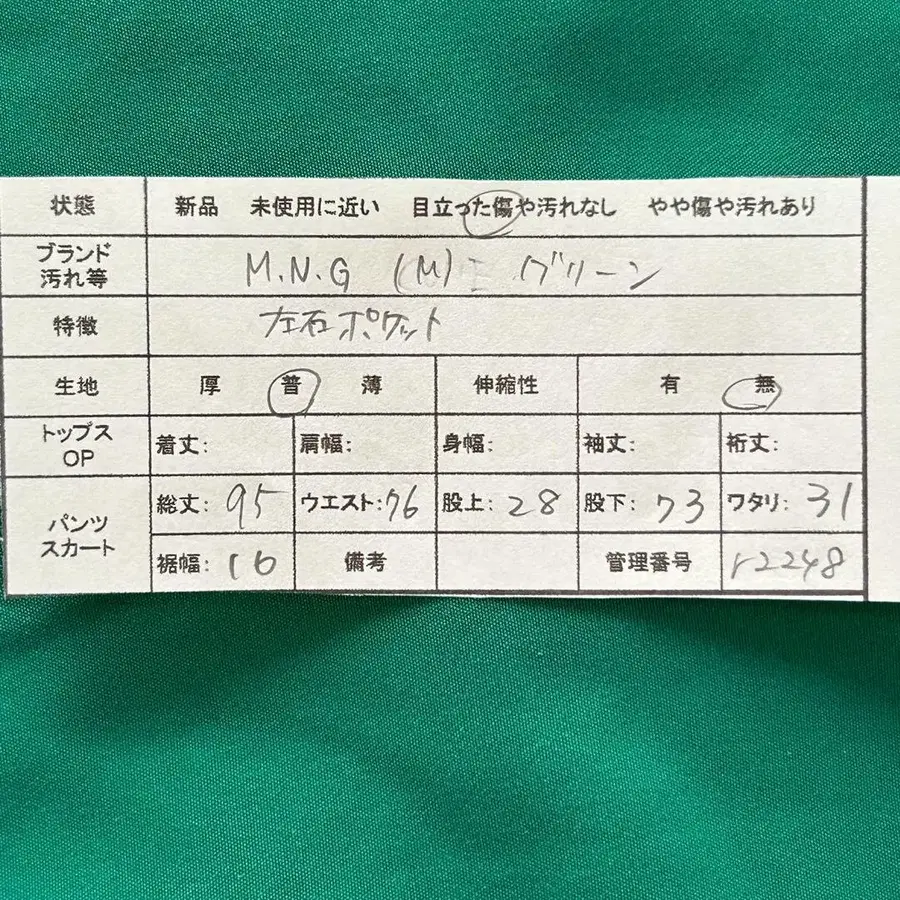 状態 新品 未使用に近い 目立った傷や汚れなし やや傷や汚れあり
ブランド
汚れ等 M.N.G (M) グリーン
特徴 左右ポケット
生地 厚 普 薄 伸縮性 有 無
トップス
OP 着丈: 肩幅: 身幅: 袖丈: 裄丈:
パンツ
スカート 総丈: 95 ウエスト: 76 股上: 28 股下: 73 ワタリ: 31
裾幅: 16 備考 管理番号 r2248